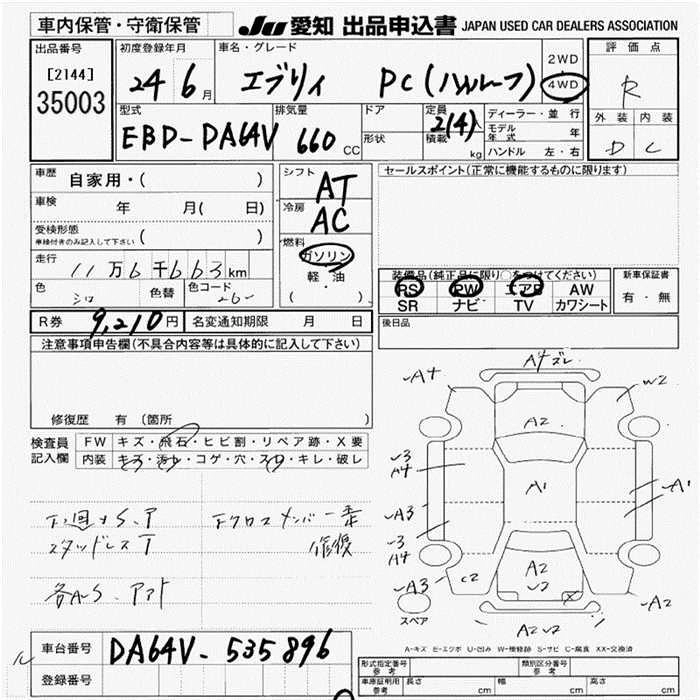 車内保管・守衛保管
JU 愛知 出品申込書 JAPAN USED CAR DEALERS ASSOCIATION
出品番号
[2144]
35003
初度登録年月
24 6月
車名・グレード
エブリィ PC(ハイルーフ)
2WD
4WD
評価点
R
外装 内装
D C
型式
EBD-DA64V
排気量
660 CC
ドア
形状
定員 2(4)人
積載 kg
ディーラー・並行
モデル年式 年
ハンドル 左・右
車歴
自家用・( )
車検 年 月( 日)
受検形態
車検付きのみ記入して下さい ( )
走行
11万6千663km
色 シロ 色替 色コード 26-
シフト AT
冷房 AC
燃料
ガソリン
軽・油
( ・ )
セールスポイント(正常に機能するものに限ります)
装備品(純正品に限り○をつけてください)
PS PW エアB AW
SR ナビ TV カワシート
新車保証書
有・無
R券 9,210円 名変通知期限 月 日
後日品
注意事項申告欄(不具合内容等は具体的に記入して下さい)
修復歴 有 (箇所 )
検査員
記入欄
FW キズ・飛石・ヒビ割・リペア跡・X要
内装 キズ・汚れ・コゲ・穴・スレ・キレ・破レ
下廻りS.P
スタッドレスT
Fクロスメンバー一条
修復
各AS.アト
A4ズレ
A4
W2
A2
3
A4
A1
A1
A3
3
A4
A3
C2
A2
2
X
A2
A2 2
スペア
A-キズ E-エクボ U-凹み W-補修跡 S-サビ C-腐食 XX-交換済
車台番号 DA64V-535896
登録番号
形式指定番号 参考
類別区分番号 参考
車庫証明用 参考 長さ cm 幅 cm 高さ cm